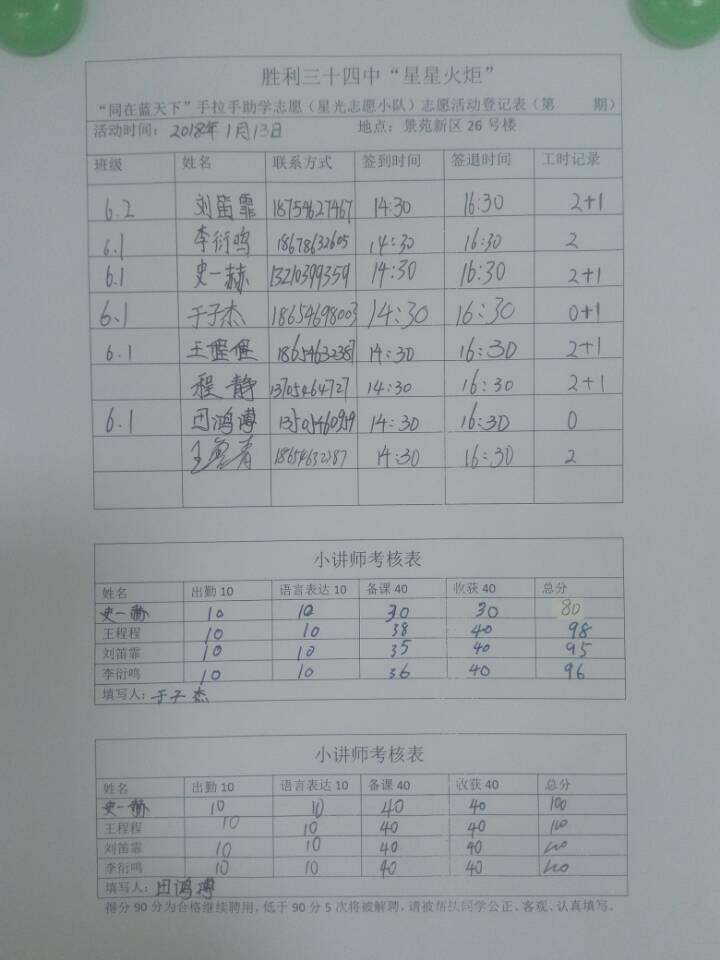 胜利三十四中“星星火炬”
“同在蓝天下”手拉手助学志愿（星光志愿小队）志愿活动登记表（第 期）
活动时间：2018年1月13日 地点：景苑新区26号楼
班级 姓名 联系方式 签到时间 签退时间 工时记录
6.2 刘笛霏 18754627467 14:30 16:30 2+1
6.1 李衍鸣 18678632605 14:30 16:30 2
6.1 史一赫 13210399359 14:30 16:30 2+1
6.1 于子杰 18654698003 14:30 16:30 0+1
6.1 王程程 18654632387 14:30 16:30 2+1
程静 13705464727 14:30 16:30 2+1
6.1 田鸿博 13505460959 14:30 16:30 0
14:30 16:30 2
小讲师考核表
姓名 出勤10 语言表达10 备课40 收获40 总分
史一赫 10 10 30 30 80
王程程 10 10 38 40 98
刘笛霏 10 10 35 40 95
李衍鸣 10 10 36 40 96
填写人：于子杰
小讲师考核表
姓名 出勤10 语言表达10 备课40 收获40 总分
史一赫 10 10 40 40 100
王程程 10 10 40 40 100
刘笛霏 10 10 40 40 100
李衍鸣 10 10 40 40 100
填写人：田鸿博
得分90分为合格继续聘用，低于90分5次将被解聘，请被帮扶同学公正、客观、认真填写。